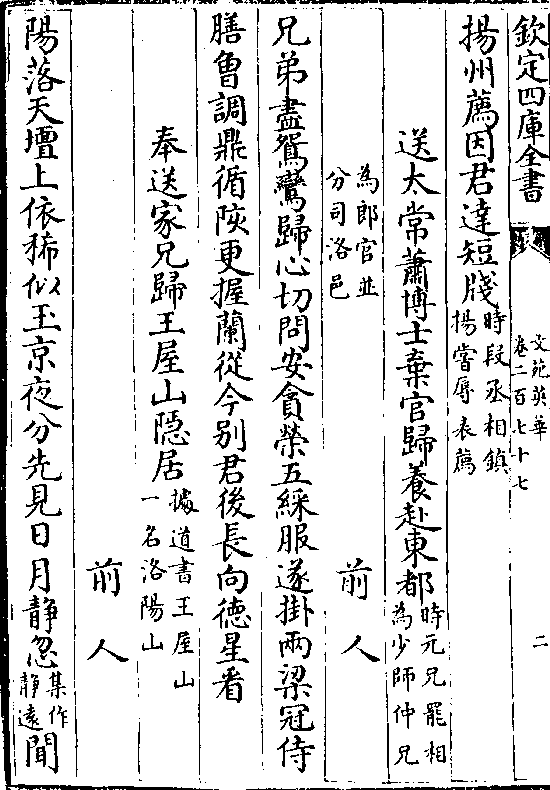 欽定四庫全書
文苑英華
卷二百七十七
二
揚州薦因君達短牋時段丞相鎮
揚嘗辱表薦
送太常蕭博士棄官歸養赴東都時元兄罷相
為少師仲兄
為郎官並
分司洛邑
前人
兄弟盡鴛鸞歸心切問安貪榮五綵服遂掛兩梁冠侍
膳魯調鼎循陔更握蘭從今别君後長向德星看
奉送家兄歸王屋山隠居據道書王屋山
一名洛陽山
前人
陽落天壇上依稀似玉京夜分先見日月靜忽集作
靜遠聞